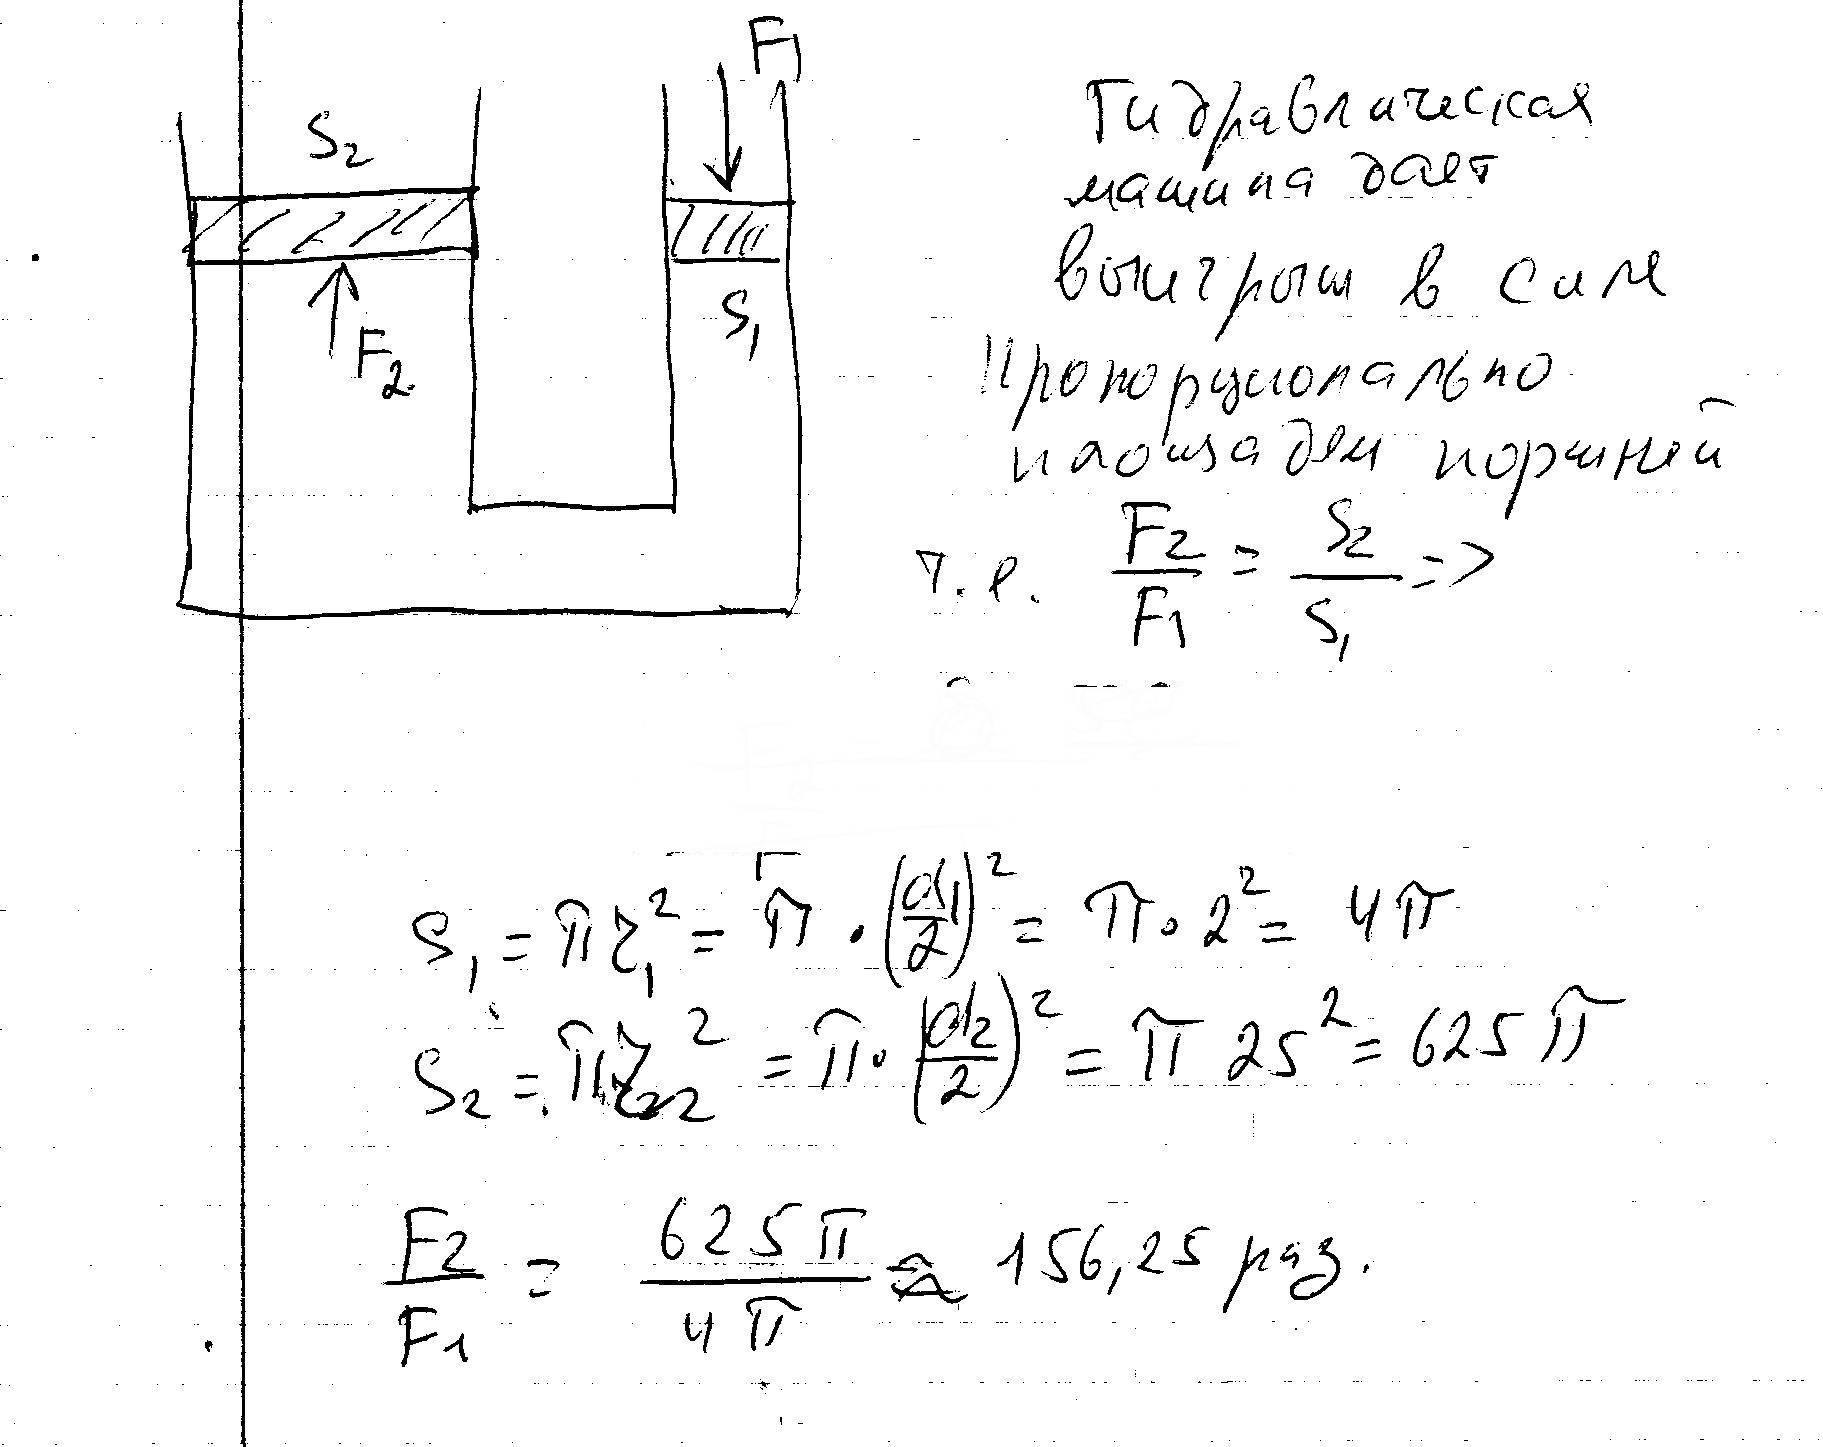 F₁
S₂
F₂
S₁
Гидравлическая
машина дает
выигрыш в силе
Пропорционально
площадям поршней
т.е. F₂/F₁ = S₂/S₁ =>
S₁ = πr₁² = π · (d₁/2)² = π · 2² = 4π
S₂ = πr₂² = π · (d₂/2)² = π 25² = 625π
F₂/F₁ = 625π/4π ≈ 156,25 раз.